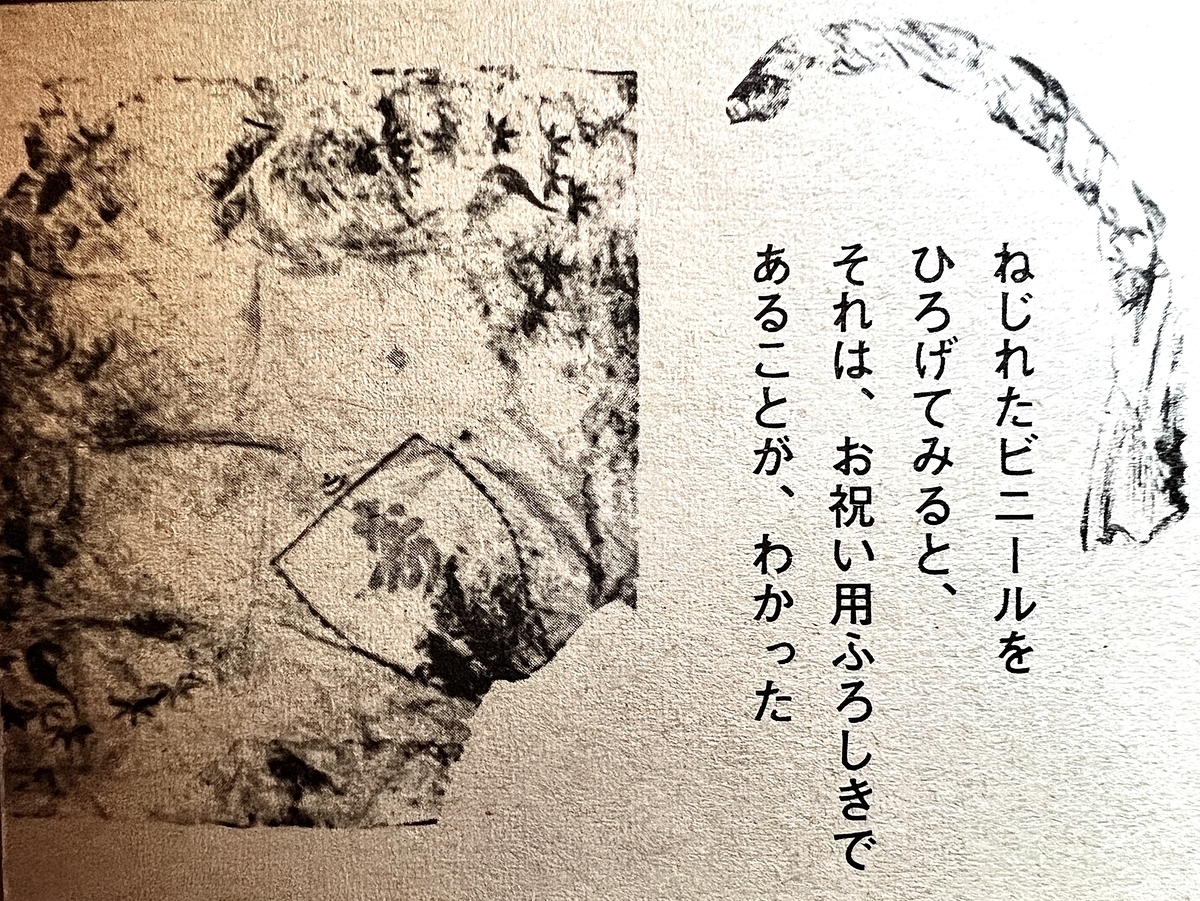 ねじれたビニールを
ひろげてみると、
それは、お祝い用ふろしきで
あることが、わかった